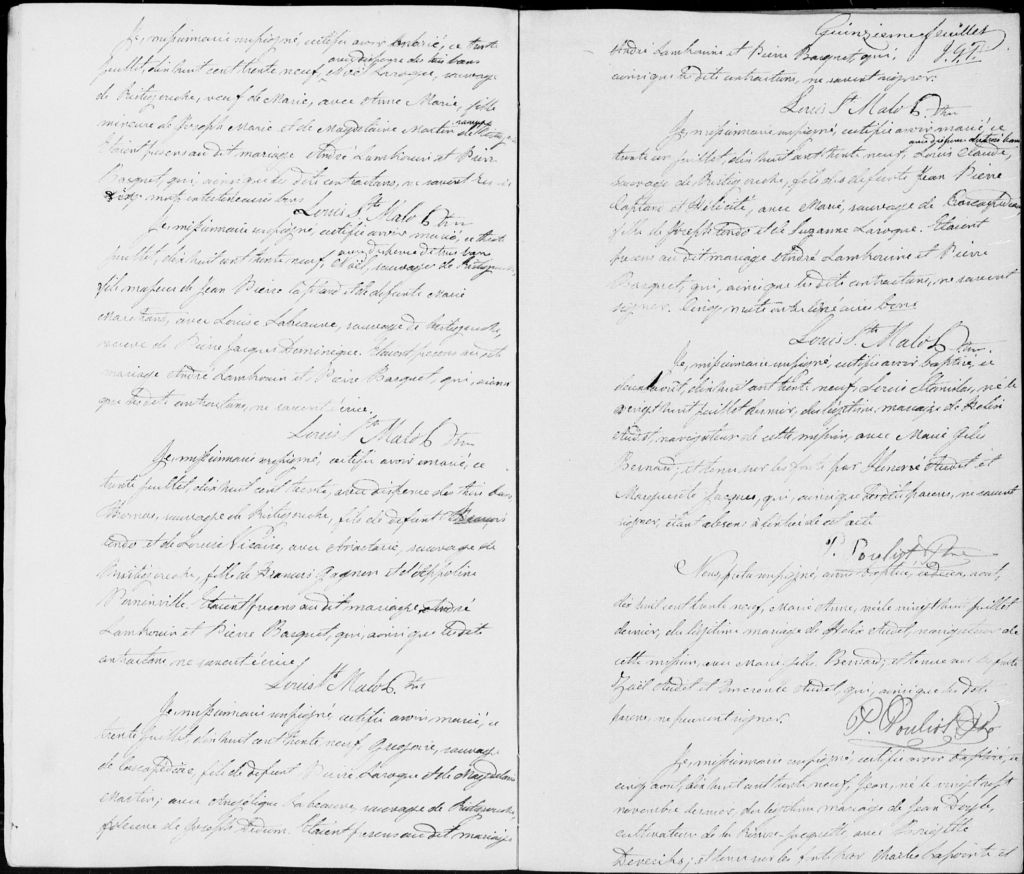 Je, missionnaire soussigné, certifie avoir marié, ce trente
avec dispense de trois bans
juillet, dix huit cent trente neuf, Noël Larocque, sauvage
de Ristigouche, veuf de Marie, avec Anne Marie, fille
mineure de Joseph Marie et de Magdelaine Martin
Etaient présens au dit mariage André Lamhouin et Pierre
Basquet, qui, ainsi que dits contractans, ne savent
Louis St. Malo Ptre
Je, missionnaire soussigné, certifie avoir marié, ce trente
avec dispense de trois bans
juillet, dix huit cent trente neuf, Noël, sauvage de
fils majeur de Jean Pierre et de defunte Marie
avec Louise Labeauve, sauvage de Ristigouche,
veuve de Pierre Jacques Dominique. Etaient présens au dit
mariage André Lamhouin et Pierre Basquet, qui, ainsi
que les dits contractans, ne savent écrire.
Louis St. Malo Ptre
Je, missionnaire soussigné, certifie avoir marié, ce
trente juillet, dix huit cent trente, avec dispense de trois bans
sauvage de Ristigouche, fils de defunt François
Condo et de Louise Vicaire, avec Anastasie, sauvage de
Ristigouche, fille de François Gagnon et d'Appoline
Etaient présens au dit mariage André
Lamhouin et Pierre Basquet, qui, ainsi que les dits
contractans, ne savent écrire
Louis St. Malo Ptre
Je, missionnaire soussigné, certifie avoir marié, ce
trente juillet, dix huit cent trente neuf, Gregoire, sauvage
de Cascapédiac, fils de défunt Pierre Larocque et de Magdelaine
Martin; avec Angélique Labeauve, sauvage de Ristigouche
de Joseph Etaient présens au dit mariage
Quinzième feuillet
André Lamhouin et Pierre Basquet, qui,
ainsi que les dits contractans, ne savent signer.
Louis St. Malo Ptre
Je, missionnaire soussigné, certifie avoir marié, ce
avec dispense de trois bans
trente un juillet, dix huit cent trente neuf, Louis Claude,
sauvage de Ristigouche, fils de Jean Pierre
et Félicité, avec Marie, sauvage de Cascapédiac,
fille de Joseph Condo et de Suzanne Larocque. Etaient
présens au dit mariage André Lamhouin et Pierre
Basquet, qui, ainsi que les dits contractans, ne savent
signer. Cinq mots interlignés bons
Louis St. Malo Ptre
Je, missionnaire soussigné, certifie avoir baptisé, ce
août, dix huit cent trente neuf, Louis Stanislas, né le
vingt huit juillet dernier, du légitime mariage de Helix
Audet, navigateur de cette mission, avec Marie Giles
Bernard; et tenu sur les fonts par Honoré Audet et
Marguerite Jacques, qui, ainsi que les dits parens, ne savent
signer, étant absens à l'entrée de cet acte
P. Pouliot Ptre
Nous prêtre soussigné avons baptisé, août,
dix huit cent trente neuf, Marie Anne, née le vingt huit juillet
dernier, du légitime mariage de Helix Audet, navigateur de
cette mission, avec Marie Giles Bernard; et tenue sur les fonts
Audet et Audet, qui, ainsi que les dits
parens, ne peuvent signer.
P. Pouliot Ptre
Je, missionnaire soussigné certifie avoir baptisé, ce
cinq août, dix huit cent trente neuf, Jean, né le vingt sept
novembre dernier, du légitime mariage de Jean Doyle,
cultivateur de la avec Brigitte
; et tenu sur les fonts par Charles Lapointe et